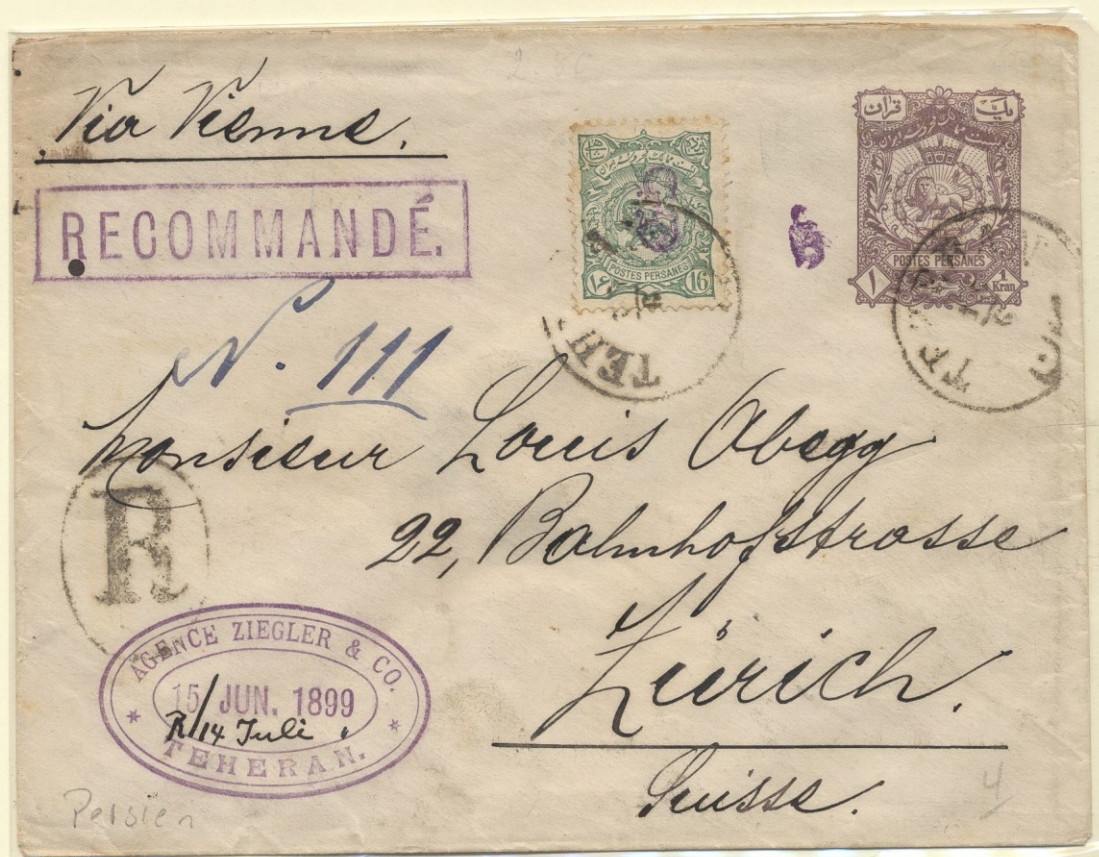 2.80
Via Vienne.
RECOMMANDÉ.
POSTES PERSANES
۱۶ 16
قران یک
POSTES PERSANES
۱ 1 Kran
TEH
TE
N. 111
Monsieur Louis Abegg
22, Bahnhofstrasse
Zürich.
Suisse.
R
AGENCE ZIEGLER & CO.
15/ JUN. 1899
R/14 Juli "
* TEHERAN. *
Persien
4